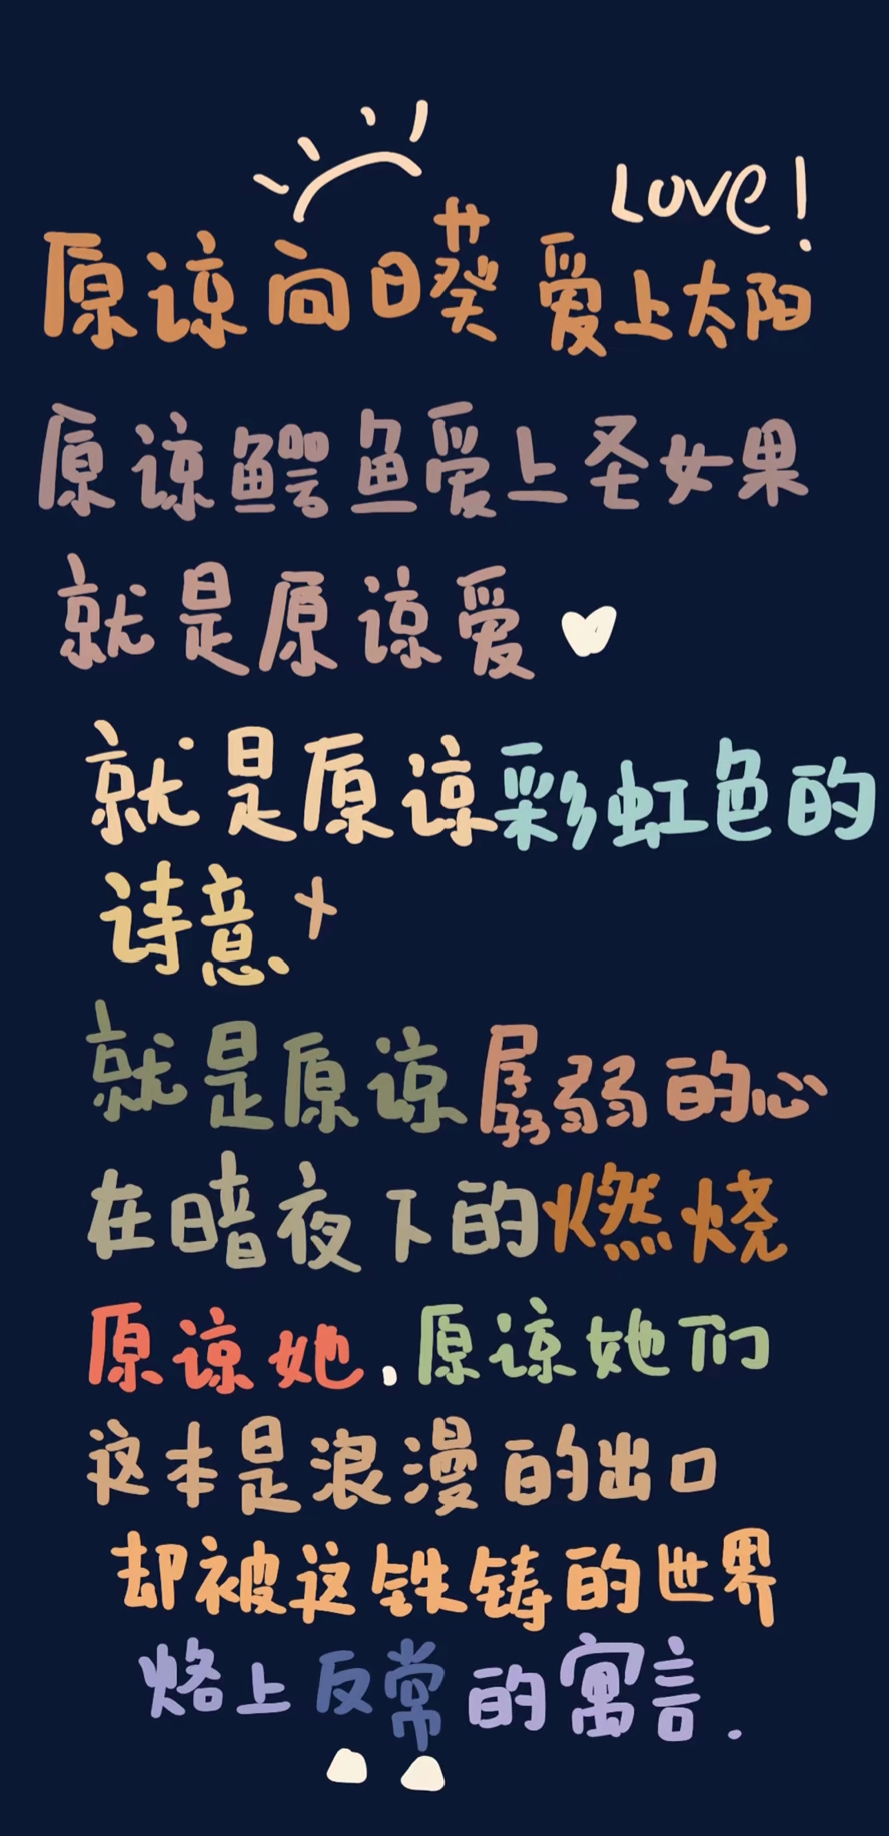 Love!
原谅向日葵爱上太阳
原谅鳄鱼爱上圣女果
就是原谅爱
就是原谅彩虹色的
诗意
就是原谅孱弱的心
在暗夜下的燃烧
原谅她.原谅她们
这本是浪漫的出口
却被这铁铸的世界
烙上反常的寓言.